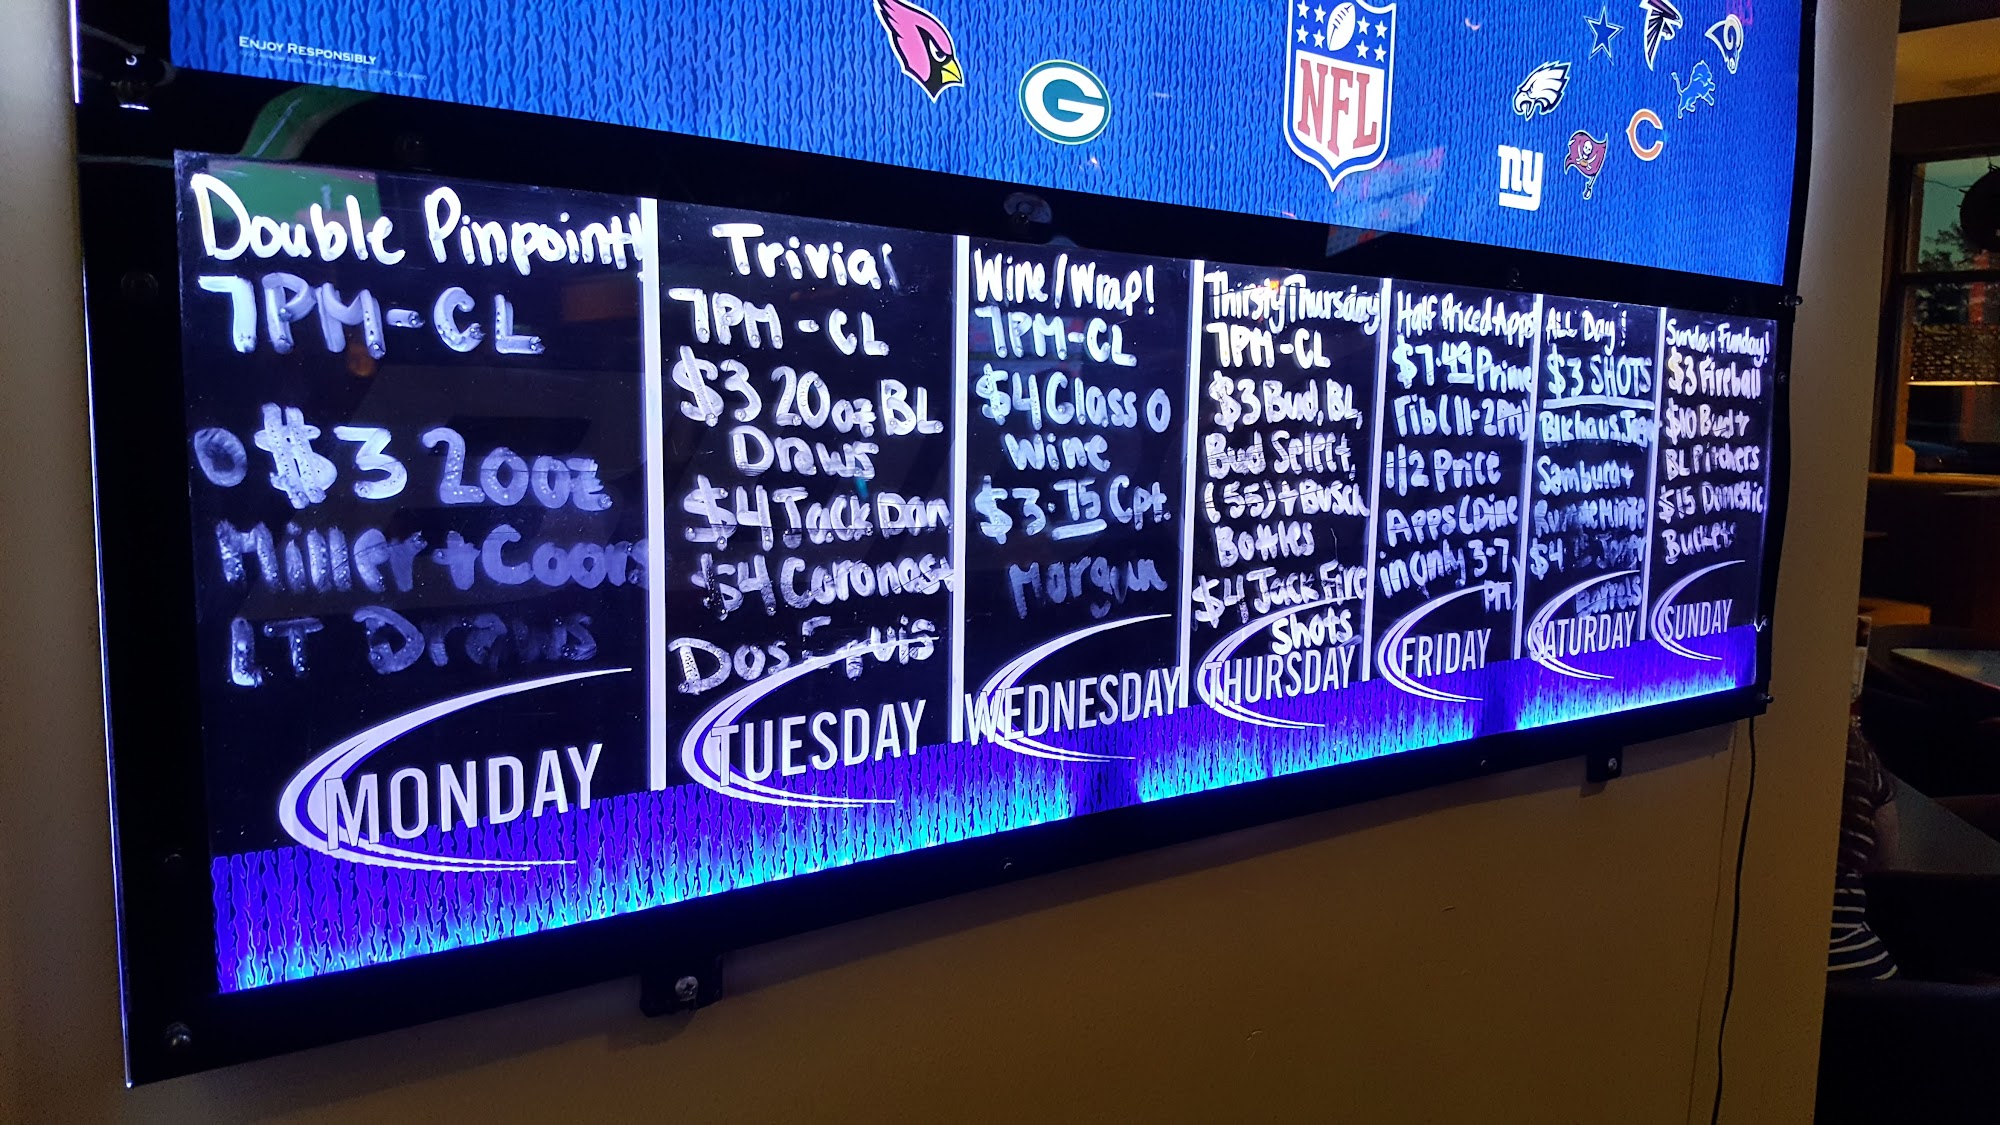 ENJOY RESPONSIBLY
G
NFL
ny
C
Double Pinpoint!
7PM-CL
$3 20oz
Miller + Coors
LT Draws
MONDAY
Trivia!
7PM-CL
$3 20oz BL
Draws
$4 Jack Dan
$4 Coronas+
Dos Equis
TUESDAY
Wine/Wrap!
7PM-CL
$4 Glass O
Wine
$3.75 Cpt.
Morgan
WEDNESDAY
Thirsty Thursday
7PM-CL
$3 Bud, BL,
Bud Select,
(55) + Busch
Bottles
$4 Jack Fire
Shots
THURSDAY
Half Priced Apps
$7.49 Prime
rib (11-2pm)
1/2 Price
Apps (Dine
in only 3-7
PM)
FRIDAY
ALL Day!
$3 SHOTS
Blkhaus,
+
$4
Barrels
SATURDAY
Sunday Funday!
$3 Fireball
$10 Bud +
BL Pitchers
$15 Domestic
Buckets
SUNDAY